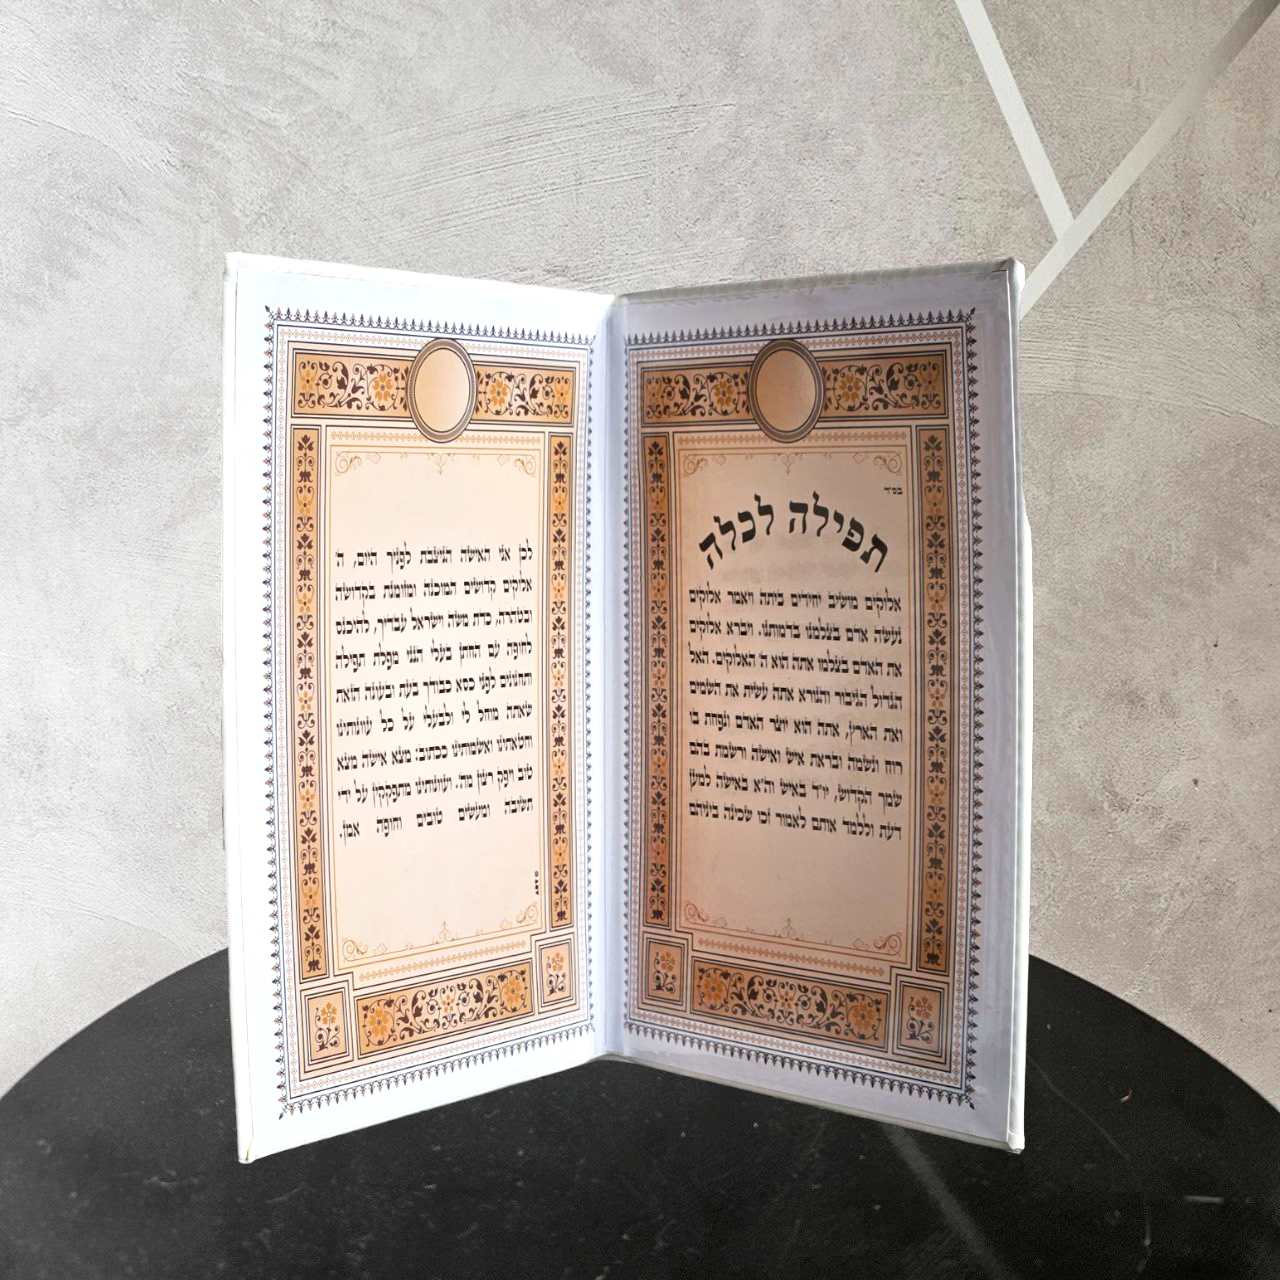 בס״ד
תפילה לכלה
אלוקים מושיב יחידים ביתה ויאמר אלוקים
נעשה אדם בצלמנו בדמותנו. ויברא אלוקים
את האדם בצלמו אתה הוא ה' האלוקים. האל
הגדול הגיבור והנורא אתה עשית את השמים
ואת הארץ, אתה הוא יוצר האדם ונפחת בו
רוח ונשמה ובראת איש ואישה ורשמת בהם
שמך הקדוש, יו״ד באיש וה״א באישה למען
דעת וללמד אותם לאמור זכו שכינה ביניהם
לכן אני האישה הניצבת לפניך היום, ה'
אלוקים קדושים המוכנה ומזומנת בקדושה
ובטהרה, כדת משה וישראל עבדיך, להיכנס
לחופה עם החתן בעלי הנני מפלת תפילה
ותחנונים לפני כסא כבודך בעת ובעונה הזאת
שאתה מוחל לי ולבעלי על כל עונותינו
וחטאתינו ואשמותינו ככתוב: מצא אישה מצא
טוב ויפק רצון מה'. ועונותינו מתפקקין על ידי
תשובה ומעשים טובים וחופה אמן.